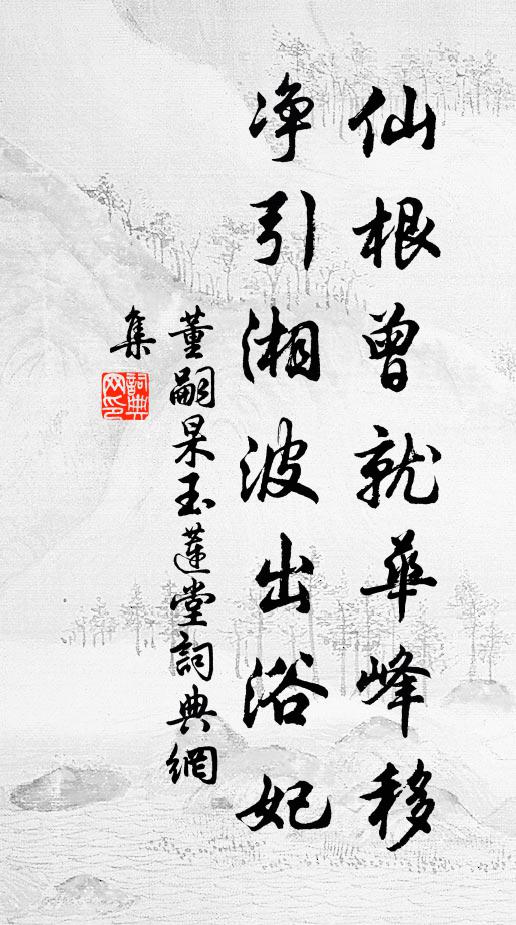 仙根曾就華峰移
净引湘波出浴妃
董嗣杲玉蓮堂詞典網
集
詞典
网印